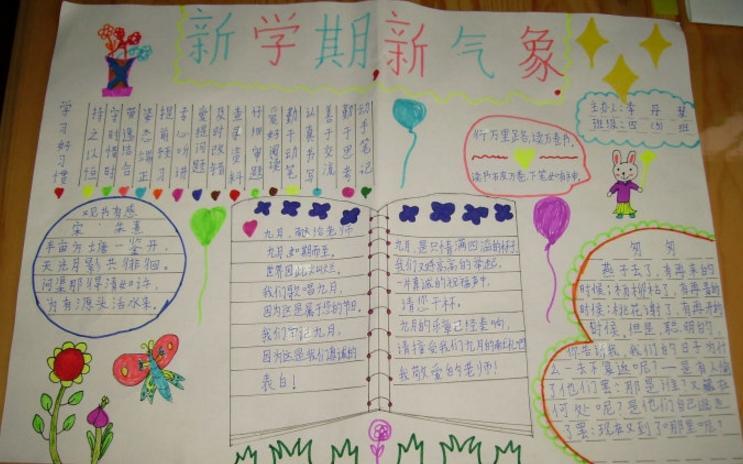 新学期新气象
主办人:李丹慧
班级:四(3)班
学习好习惯
持之以恒
守时惜时
营造结合
姿态端正
提前预习
专心听讲
爱提问题
及时改错
查集资料
仔细审题
爱好阅读
勤于动笔
认真书写
善于交流
勤于思考
动手笔记
行万里路,读万卷书。
读书破万卷,下笔如有神。
观书有感
宋 朱熹
半亩方塘一鉴开,
天光月影共徘徊。
问渠那得清如许,
为有源头活水来。
九月,献给老师
九月,如期而至。
世界因此灿烂。
我们歌唱九月,
因为这是属于您的节日。
我们牢记九月,
因为这是我们真诚的
表白!
九月,是只情满四溢的杯子,
我们又将高高的举起,
一片真诚的祝福声中,
请您干杯。
九月的乐章已经奏响,
请接受我们九月的献礼吧
我敬爱的老师!
匆匆
燕子去了,有再来的
时候;杨柳枯了,有再青的
时候;桃花谢了,有再开的
时候。但是,聪明的,
你告诉我,我们的日子为什
么一去不复返呢?—是有人偷
了他们罢:那是谁?又藏在
何处呢?是他们自己逃走
了罢:现在又到了哪里呢?